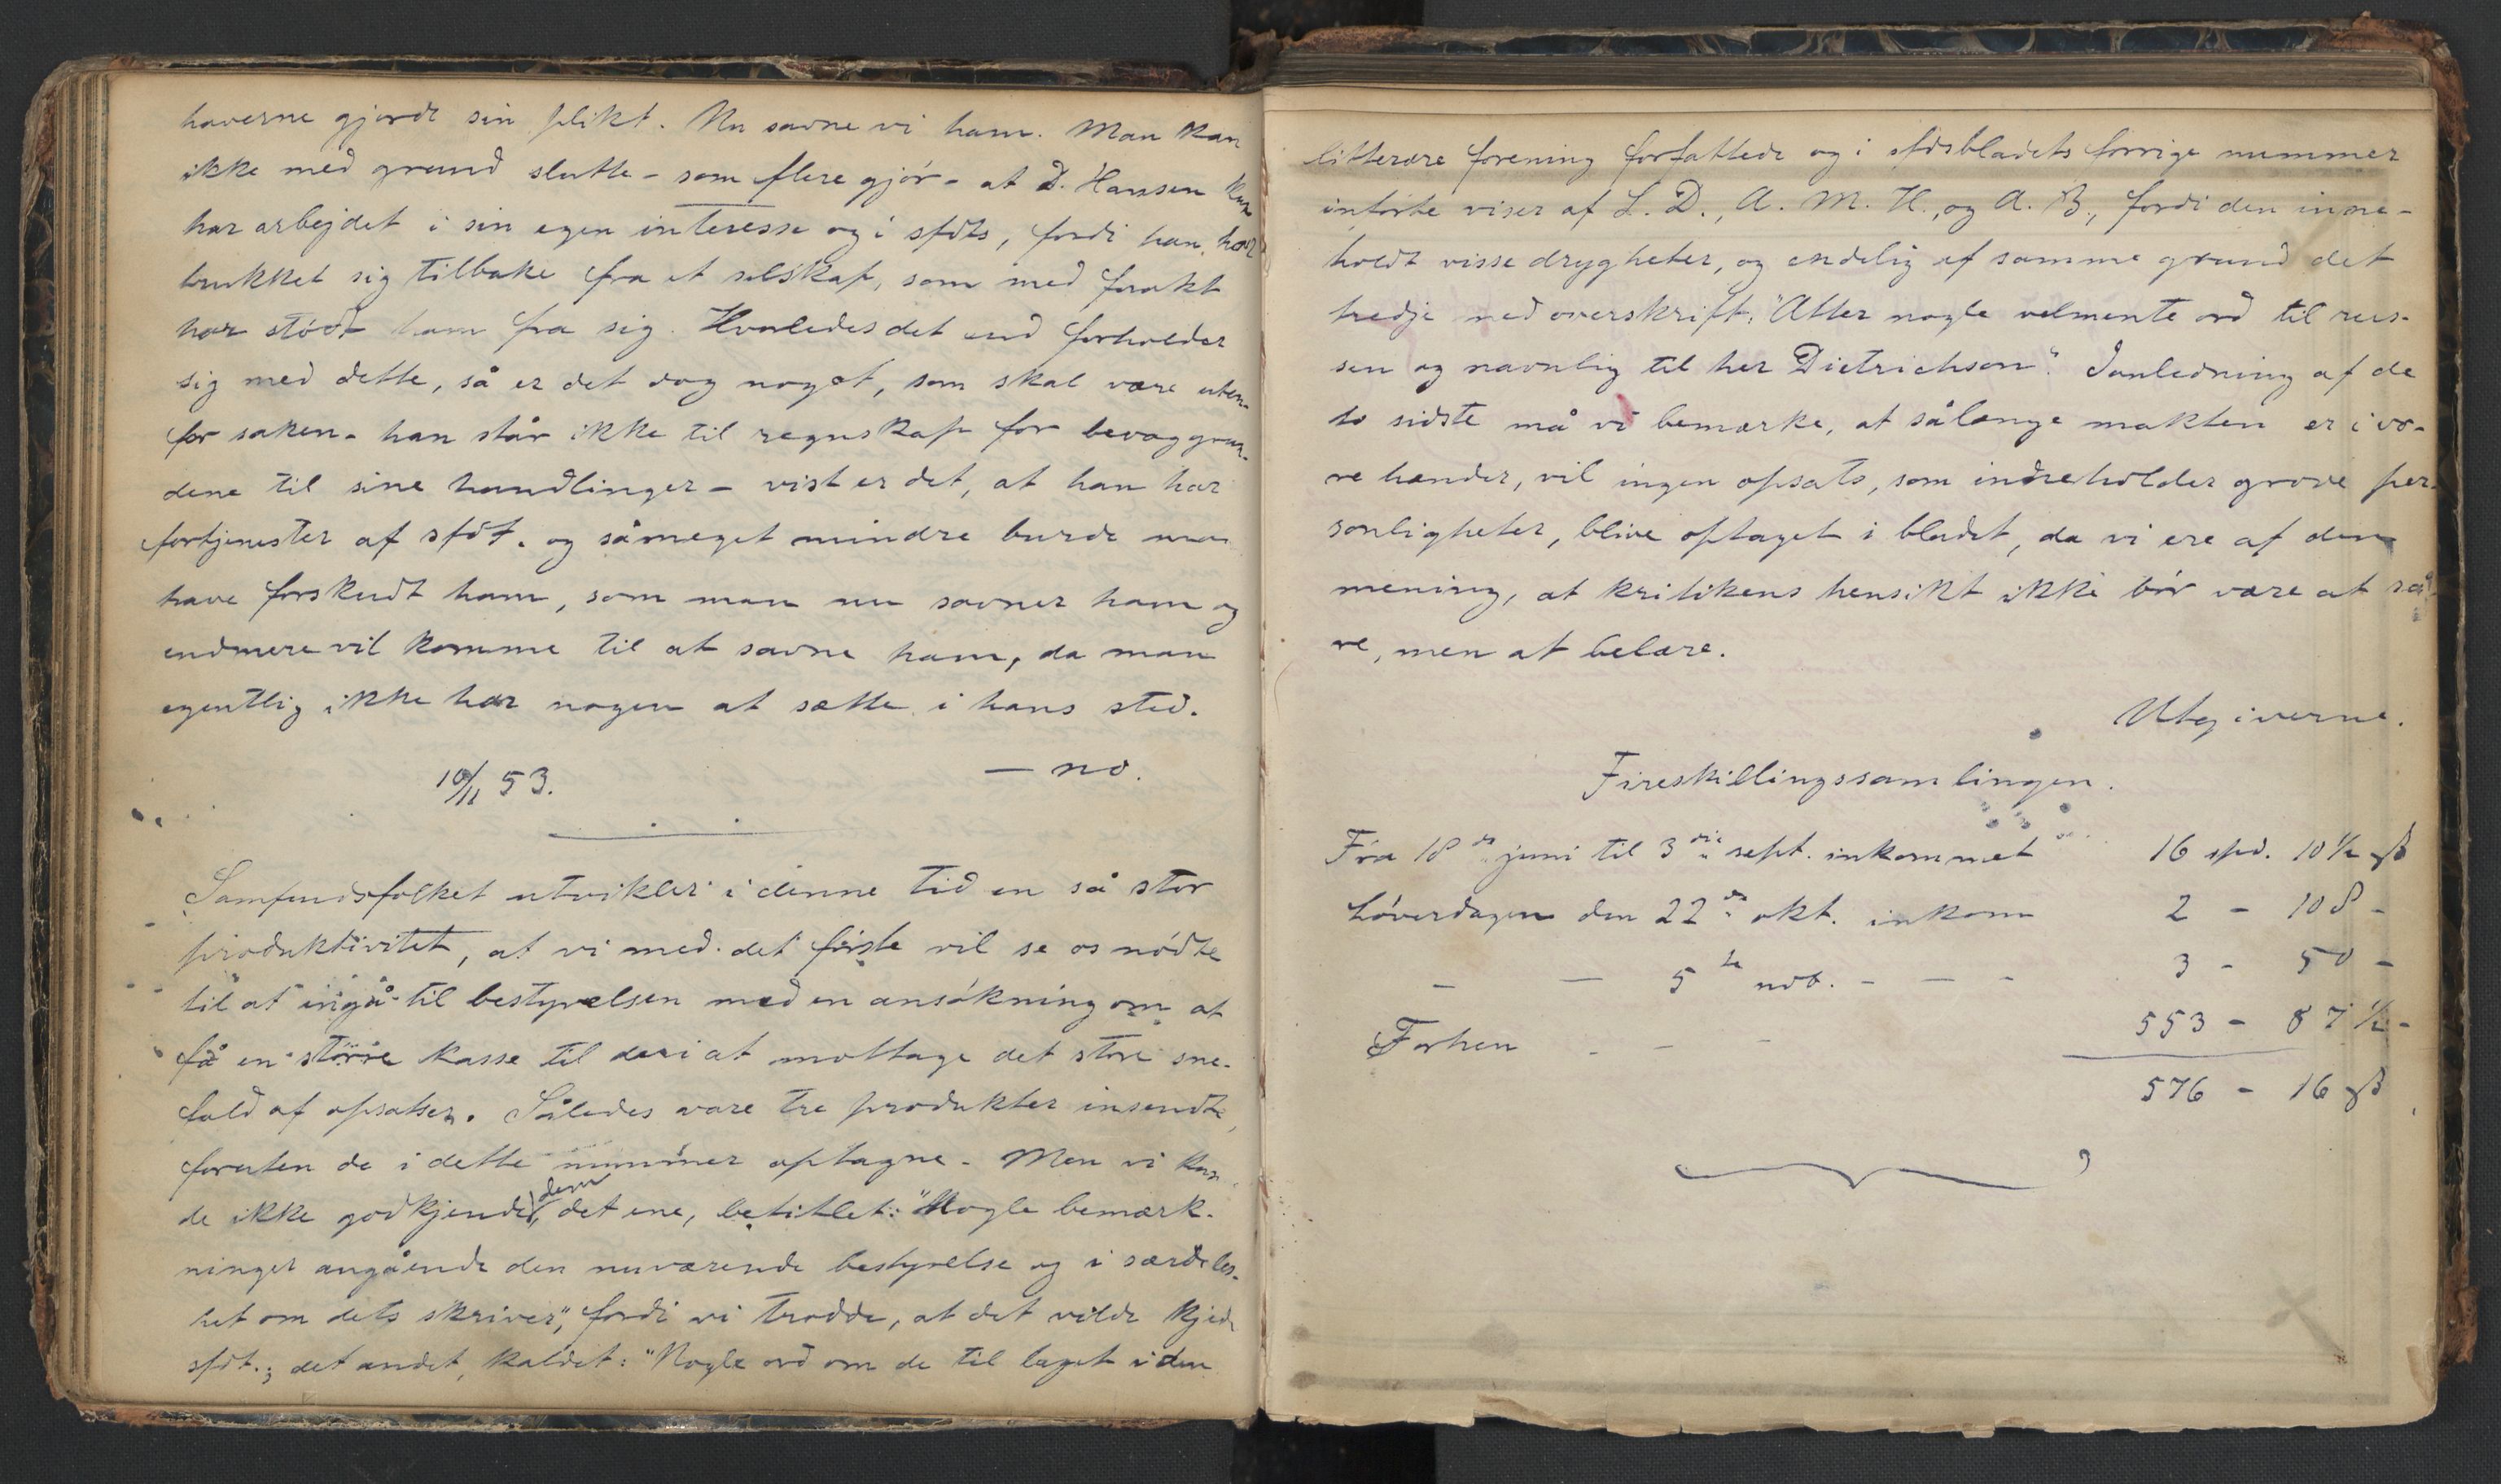 haverne gjordt sin plikt. Nu savne vi ham. Man kan
ikke med grund slutte – som flere gjør – at D. Hansen kun
har arbejdet i sin egen interesse og i sfdts, fordi han har
trukket sig tilbake fra et selskap, som med forakt
har stødt ham fra sig. Hvorledes det end forholder
sig med dette, så er det dog noget, som skal være uten-
for saken – han står ikke til regnskap for bevæggrun-
dene til sine handlinger – vist er det, at han har
fortjenester af sfdt. og såmeget mindre burde man
have forskudt ham, som man nu savner ham og
endmere vil komme til at savne ham, da man
egentlig ikke har nogen at sætte i hans sted.
10/11 53. — no.
Samfundsfolket utvikler i denne tid en så stor
produktivitet, at vi med det første vil se os nødte
til at ingå til bestyrelsen med en ansøkning om at
få en større kasse til deri at mottage det store sne-
fald af opsatser. Således vare tre produkter insendte,
foruten de i dette nummer optagne. Men vi kun-
de ikke godkjende dem, det ene, betitlet: "Nogle bemærk-
ninger angående den nuværende bestyrelse og i særdeles-
het om dets skriver", fordi vi trodde, at det vilde kjede
sfdt.; det andet, kaldet: "Nogle ord om de til laget i den
litterære forening forfattede og i sfdsbladets forrige nummer
inførte viser af L. D., A. M. H., og A. B., fordi den inne-
holdt visse drygheter, og endelig af samme grund det
tredje med overskrift: "Atter nogle velmente ord til rus-
sen og navnlig til her Dietrichson". I anledning af de
to sidste må vi bemærke, at sålænge makten er i vo-
re hænder, vil ingen opsats, som inneholder grove per-
sonligheter, blive optaget i bladet, da vi ere af den
mening, at kritikens hensikt ikke bør være at så-
re, men at belære.
Utgiverne.
Fireskillingssamlingen.
Fra 18de juni til 3die sept. inkommet 16 spd. 10 1/2 ß
Løverdagen den 22de okt. inkom 2 – 108 –
– — 5te nov. – — – 3 – 50 –
Forhen – – – 553 – 87 1/2 –
576 – 16 ß